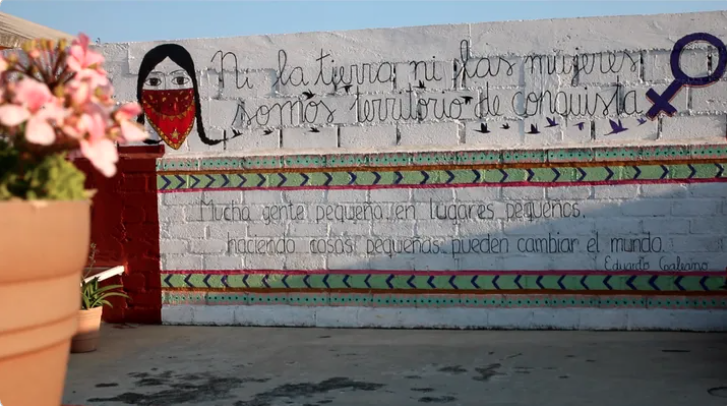 Ni la tierra, ni las mujeres
somos territorio de conquista
Mucha gente pequeña en lugares pequeños.
haciendo cosas pequeñas pueden cambiar el mundo.
Eduardo Galeano